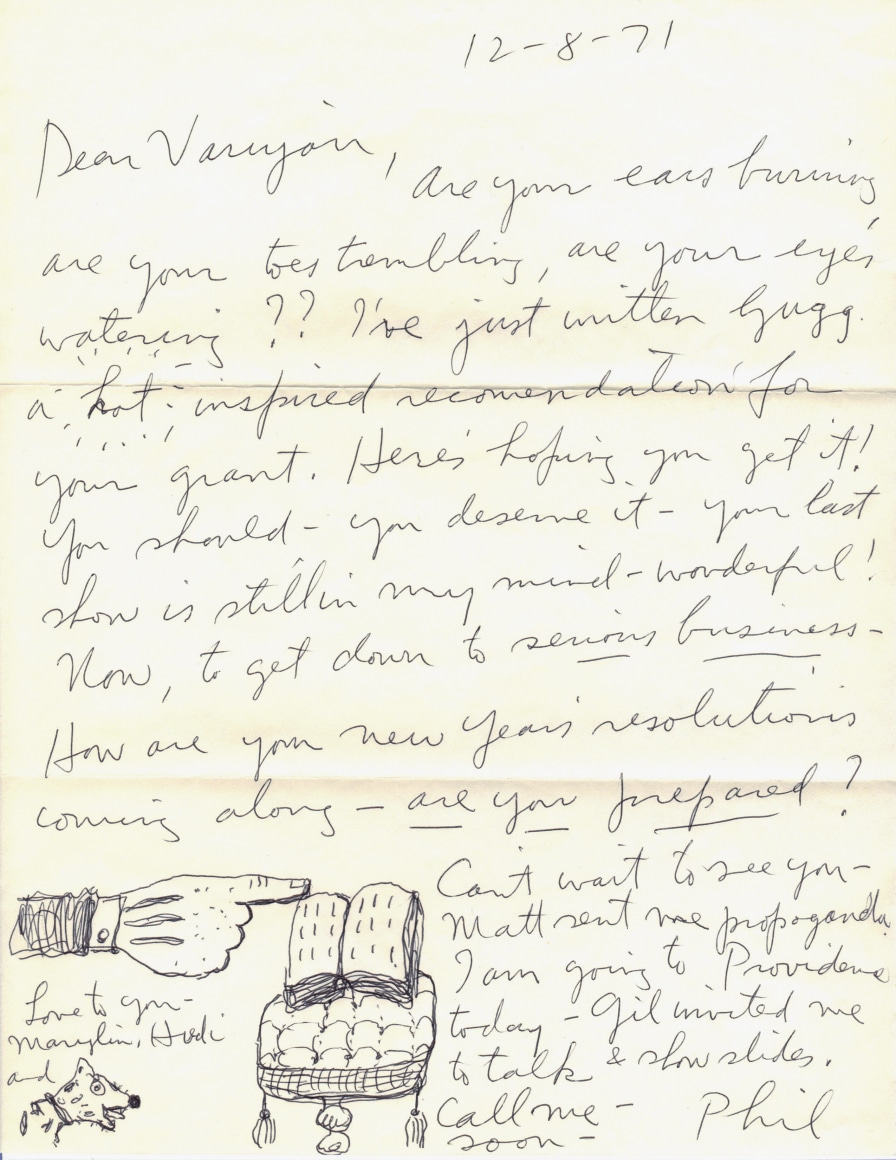 12-8-71
Dear Varujan,
are your ears burning,
are your toes trembling, are your eyes
watering ?? I've just written Gugg.
a hot inspired recomendation for
your grant. Here's hoping you get it!
You should - you deserve it - your last
show is still in my mind - wonderful!
Now, to get down to serious business -
How are your new Year's resolutions
coming along - are you prepared?
Can't wait to see you -
Matt sent me propoganda.
I am going to Providence
today - Gil invited me
to talk & show slides.
Call me -
soon -
Phil
Love to you -
Marylin, Heidi
and